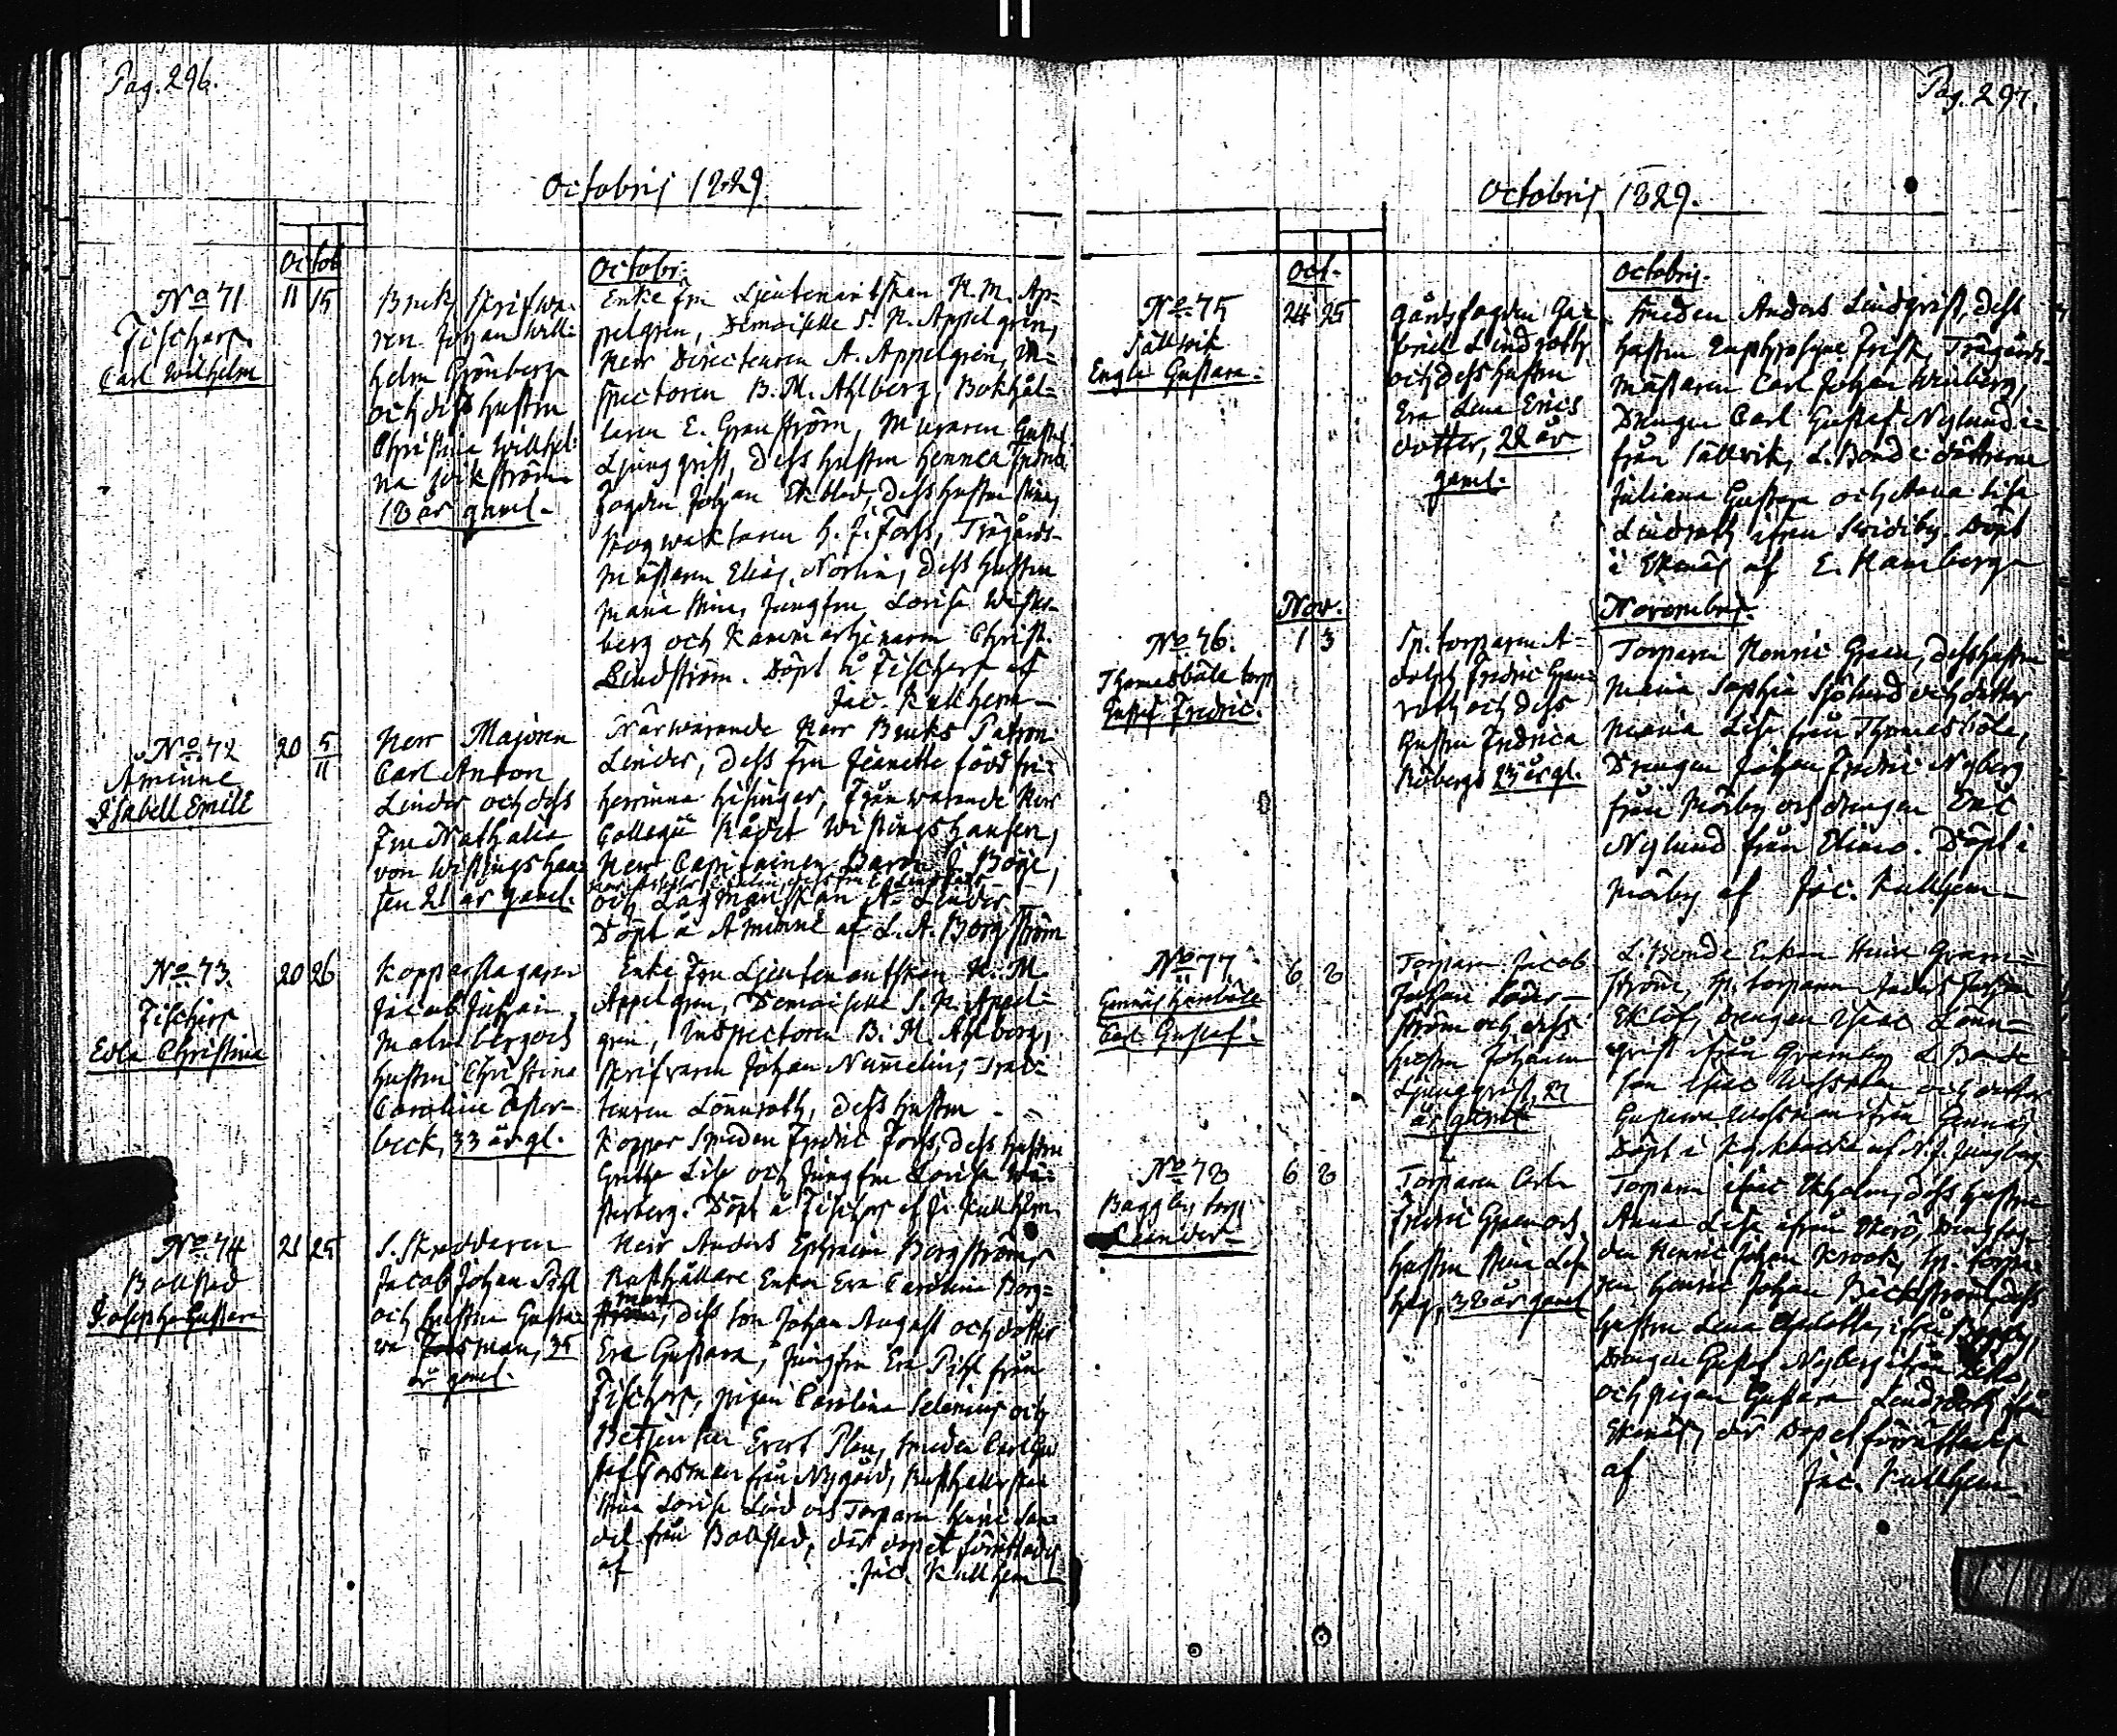 Pag. 296.
Octobris 1829.
Octob
Octobr:
No 71
Fiskars
Carl Wilhelm
11 15
Bruks skrifwa-
ren Johan Will-
helm Grönberg
och dess hustru
Christina Willhel-
na
18 år gaml-
Enke fru Lieutenantskan H. M. Ap-
pelgren, Demoiselle S. H. Appelgren,
Herr Directeuren A. Appelgren, In-
spectoren B. M. Ahlberg, Bokhål-
laren E. Granström, Muraren Gustaf
Ljungqvist, dess hustru Henrica
Fogden Johan Ekblad, dess hustru Stina,
skogwaktaren H. J. Forss, Trägårds-
mästaren Elias Norlin, dess hustru
Maria Stina, Jungfru Lovisa
berg och Kammartjenaren Christ.
Lindström. Döpt å Fiskars af
Jac. Kullhem-
No 72
Åminne
Isabell Emili
20 5/11
Herr Majoren
Carl Anton
Linder och dess
Fru Nathalia
von Wissingshau-
sen 21 år gaml.
Närwarande Herr Bruks Patron
Linder, dess fru Jeanette född fri-
herrinna Hisinger, Frånwarande Herr
Collegii Rådet Wissingshausen,
Herr Capitainen Baron J. Böije,
och Lagmanskan A. Linder
Döpt å Åminne af L. A. Borgström
No 73.
Fiskars
Eva Christina
20 26
Kopparslagaren
Jacob Johan
Malmberg och
hustru Christina
Carolina Öster-
beck, 33 år gl.
Enke Fru Lieutenantskan H. M.
Appelgren, Demoiselle S. H. Appel-
gren, Inspectoren B. M. Ahlberg,
skrifvaren Johan Numelin,
Lönnroth, dess hustru
Koppar Smeden Fredric Forss, dess hustru
Greta Lisa och Jungfru Lovisa We-
sterberg. Döpt å Fiskars af J. Kullhem.
No 74
Bollstad
Josepha Gustava
21 25
S. Skreddaren
Jacob Johan
och hustru Gusta-
va Forsman, 35
år gaml.
Herr Anders Ephraim Bergström,
Rusthållare Enkan Eva Carolina Borg-
man, dess son Johan August och dotter
Eva Gustava, Jungfru Eva från
Fiskars, pigan Carolina Selenius och
Betjenten Evert Plan, smeden Carl Gu-
staf Forsman från Nygård,
Lovisa och Torparen Henric San-
del från Bollstad, där dopet förrättades
af Jac. Kullhem-
Pag. 297.
Octobris 1829.
Oct.
Octobris.
No 75
Sällvik
Engla Gustava.
24 25
Gårds fogden Ga-
briel Lindroth
och dess hustru
Eva Lena Erics
dotter, 28 år
gaml.
Smeden Anders Lindqvist, dess
hustru Euphrosyne Frisk, Trägårds-
mästaren Carl Johan Winberg,
Drengen Carl Gustaf Nylund i-
från Sällvik, L. Bonde döttrarne
Juliana Gustava och Anna Lisa
Lindroth ifrån Skridiby. Döpt
i Ekenäs af E. Hamberg
Nov.
Novembris.
No 76.
Thomasböle torp
Gustaf Fredric.
1 3
Sp. torparen A-
dolph Fredric Gran-
roth och dess
Hustru Fredrica
Röberg 23 år gl.
Torparen Henric Green, dess hustru
Maria Sophia Sjölund och dotter
Maria Lisa från Thomasböle,
Drengen Johan Fredric Nyberg
från Mörby och drengen Eric
Nylund från . Döpt i
Mörby af Jac. Kullhem-
No 77
Gennäs
Carl Gustaf.
6 8
Torparen Jacob
Johan Söder-
ström och dess
hustru Johanna
Ljungqvist, 27
år gaml
L. Bonde Enkan Stina Gran-
ström, Sp. torparen Jacob Johan
Eklöf, Drengen Isaac Lönn-
qvist ifrån Gramby, L. Bonde
son Isaac och dotter
Gustava ifrån Gennäs
Döpt i af N. J. Ljungberg
No 78
Baggby torp
Leander-
6 8
Torparen Carl
Fredric Green och
hustru Stina Lisa
38 år gaml
Torparen Isaac Ekholm, dess hustru
Anna Lisa ifrån
den Henric Johan Krook, Sp. torpa-
ren Henric Johan Bäckström, dess
hustru Lena Charlotta, ifrån Baggby,
Drengen Gustaf Nyberg ifrån
och pigan Gustava Lindroth ifrån
Ekenäs, där dopet förrättades
af Jac. Kullhem-